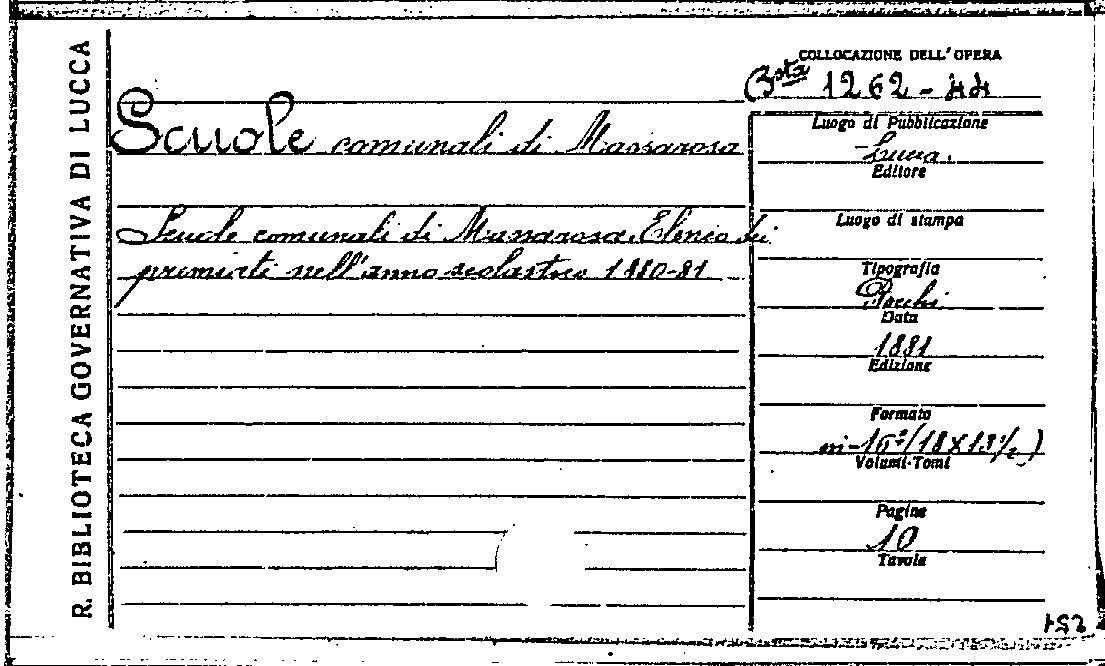 R. BIBLIOTECA GOVERNATIVA DI LUCCA
COLLOCAZIONE DELL'OPERA
Bsta 1262-44
Scuole comunali di Massarosa
Scuole comunali di Massarosa. Elenco dei
premiati nell'anno scolastico 1880-81
Luogo di Pubblicazione
Lucca.
Editore
Luogo di stampa
Tipografia
Rocchi
Data
1881
Edizione
Formato
in-16°/18X13½)
Volumi-Tomi
Pagine
10
Tavole